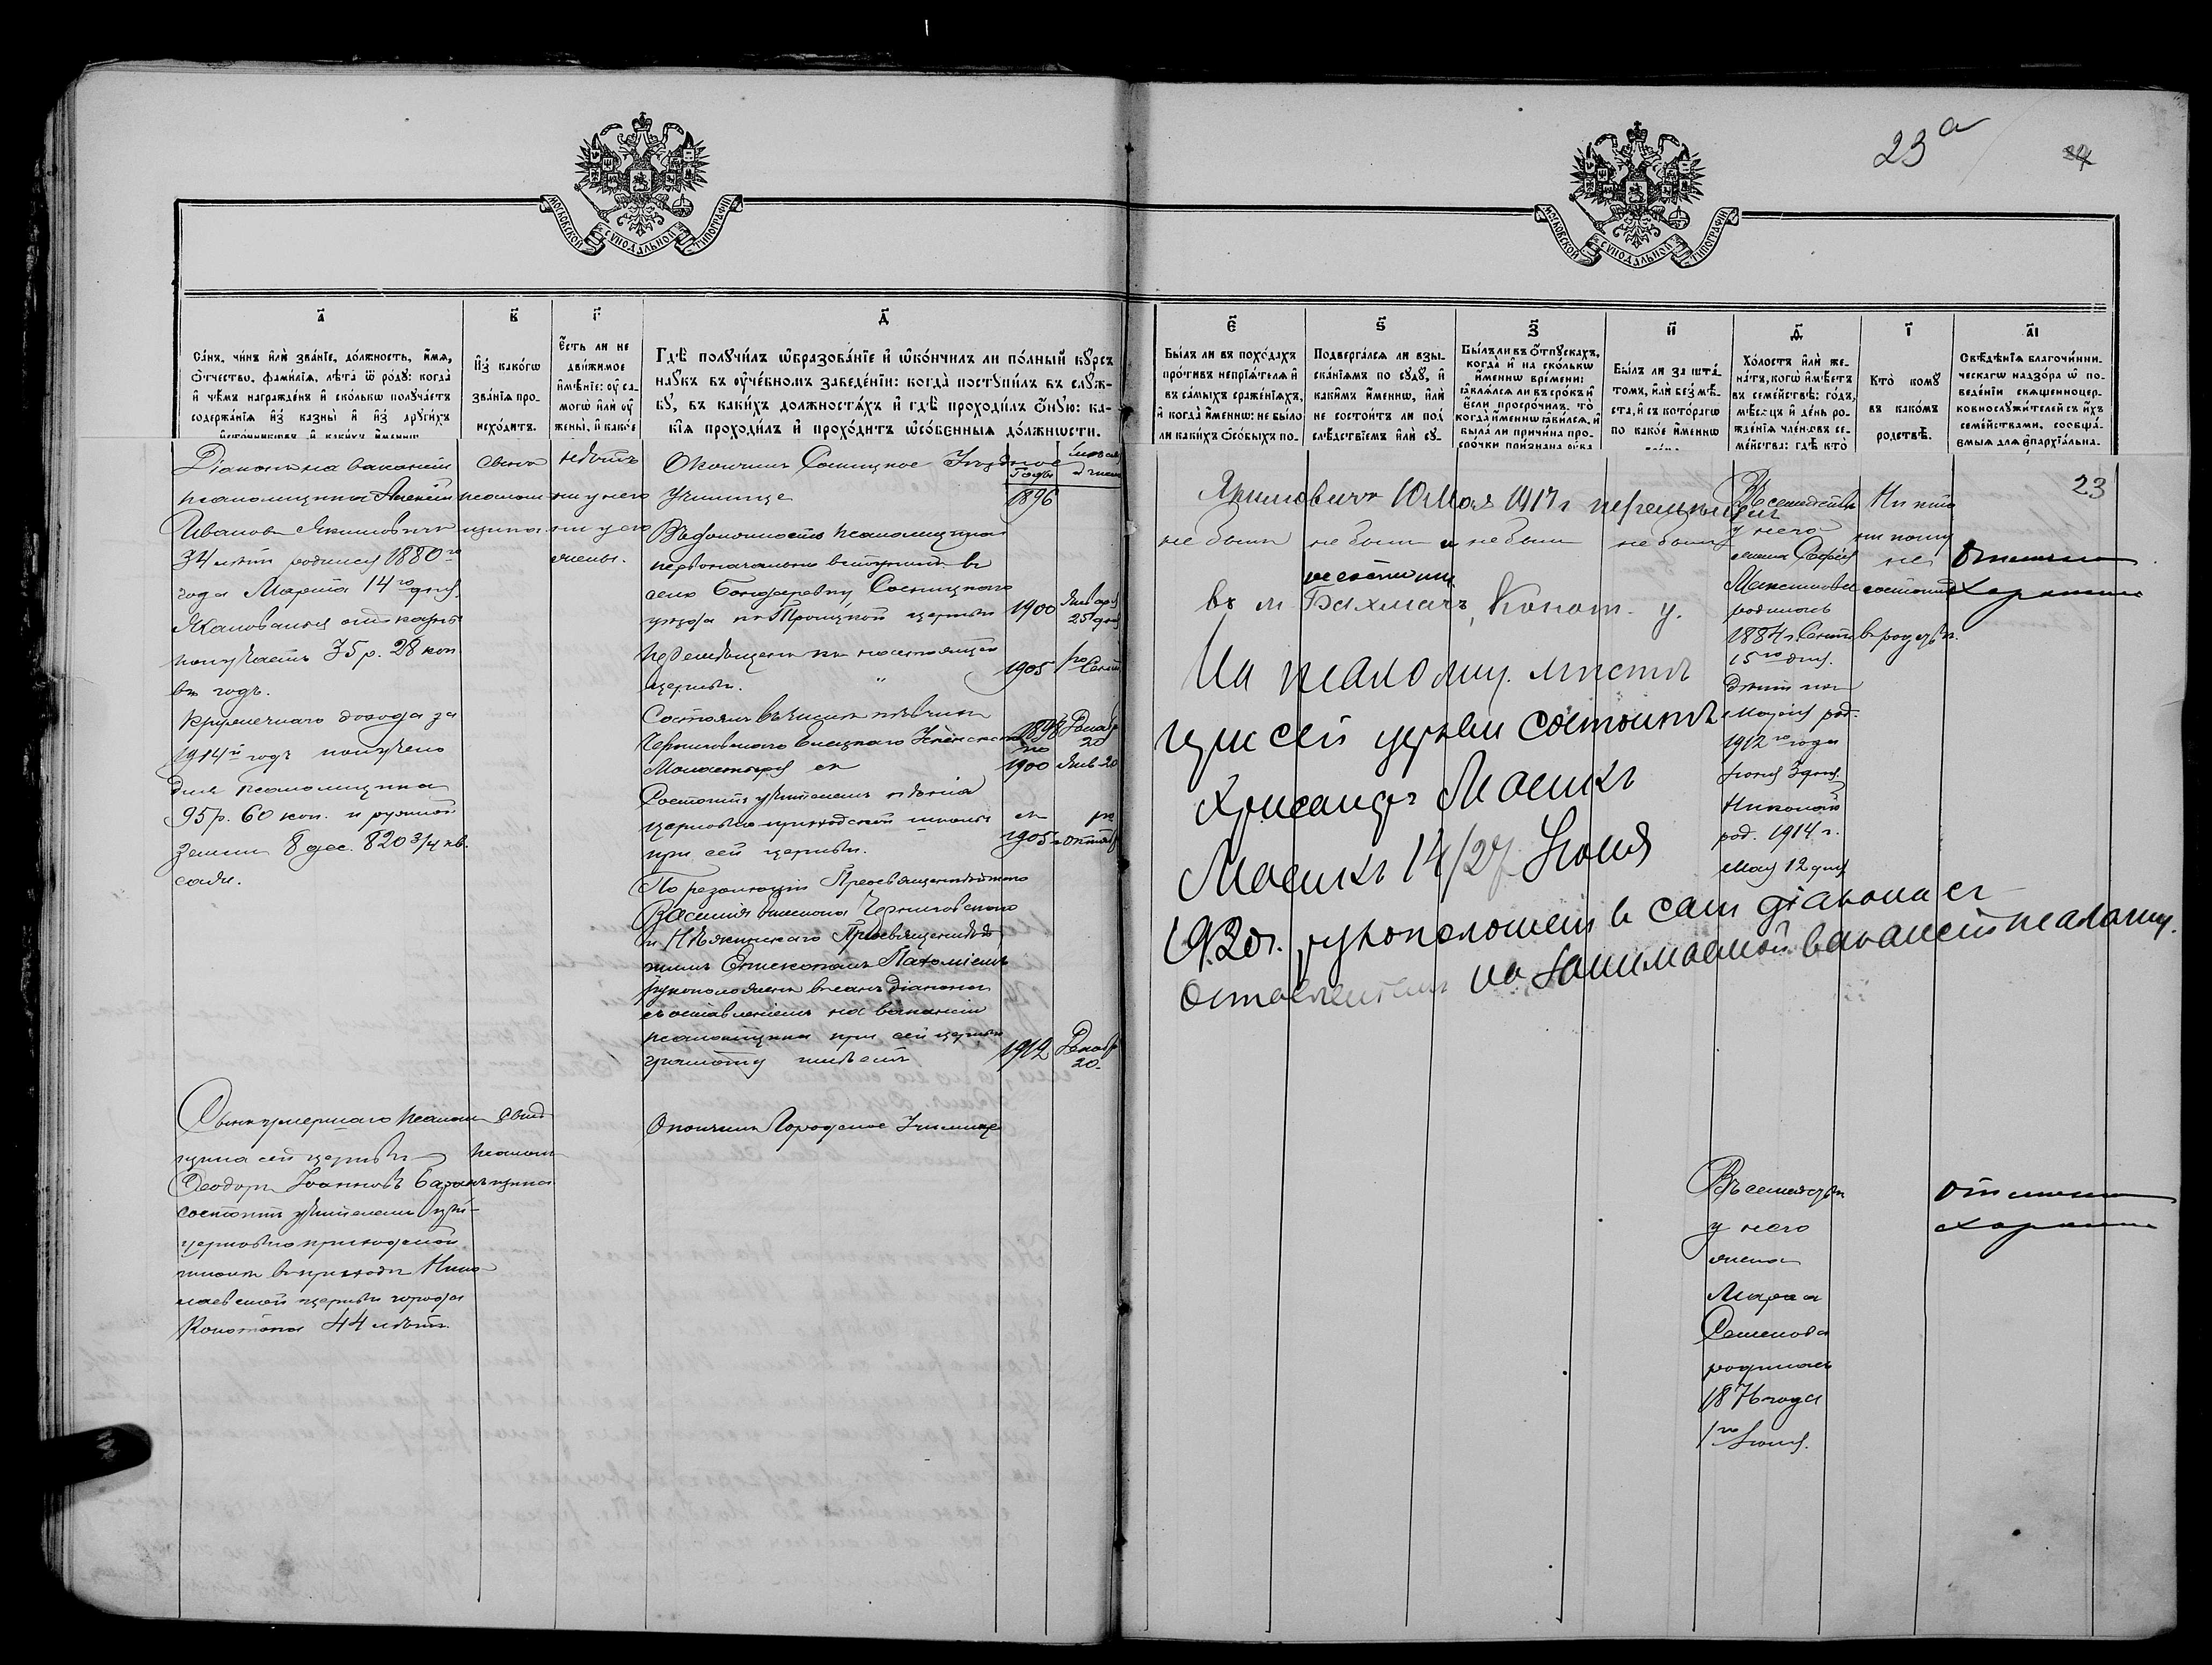 23а
24
МОСКОВСКОЙ СѴНОДАЛЬНОЙ ТИПОГРАФІИ
МОСКОВСКОЙ СѴНОДАЛЬНОЙ ТИПОГРАФІИ
а҃
Са́нъ, чи́нъ и҆лѝ зва́нїе, до́лжность, и҆́мѧ,
ѻ҆́тчество, фамилїѧ, лѣ́та ѿ ро́дꙋ: когда̀
и҆ чѣ́мъ награжде́нъ и҆ ско́лькѡ полꙋча́етъ
содержа́нїѧ и҆з̾ казны̀ и҆ и҆з̾ дрꙋги́хъ
в҃
И҆з̾ како́гѡ
зва́нїѧ про-
исхо́дитъ.
г҃
Є҆́сть ли не
дви́жимое
и҆мѣ́нїе: ᲂу҆ са-
могѡ̀ и҆лѝ ᲂу҆
жены̀, и҆ како́е
д҃
Гдѣ̀ полꙋчи́лъ ѡ҆бразова́нїе и҆ ѡ҆ко́нчилъ ли по́лный кꙋ́рсъ
наꙋ́къ въ ᲂу҆че́бномъ заведе́нїи: когда̀ постꙋпи́лъ въ слꙋ́ж-
бꙋ, въ каки́хъ до́лжностѧхъ и҆ гдѣ̀ проходи́лъ ѻ҆́нꙋю: ка-
кі́ѧ проходи́лъ и҆ прохо́дитъ ѡ҆со́бенныѧ до́лжности.
є҃
Бы́лъ ли въ похо́дахъ
про́тивъ непрїѧ́телѧ и҆
въ са́мыхъ сраже́нїѧхъ,
и҆ когда̀ и҆́меннѡ: не бы́ло
ли каки́хъ ѻ҆со́быхъ по-
ѕ҃
Подверга́лсѧ ли взы-
ска́нїѧмъ по сꙋдꙋ̀, и҆
каки́мъ и҆́меннѡ, и҆лѝ
не состои́тъ ли под̾
слѣ́дствїемъ и҆лѝ сꙋ-
з҃
Бы́лъ ли въ ѻ҆́тпꙋскахъ,
когда̀ и҆ на ско́лькѡ
и҆́меннѡ вре́мени:
ꙗ҆влѧ́лсѧ ли въ сро́къ и҆
є҆́сли просро́чилъ, то̀
когда̀ и҆́меннѡ ꙗ҆ви́лсѧ, и҆
была́ ли причи́на про-
сро́чки при́знана
и҃
Бы́лъ ли за шта́-
томъ, и҆лѝ без̾ мѣ́-
ста, и҆ съ кото́рагѡ
по како́е и҆́меннѡ
ѳ҃
Хо́лостъ и҆лѝ же-
на́тъ, когѡ̀ и҆мѣ́етъ
въ семе́йствѣ: го́дъ,
мѣ́сѧцъ и҆ де́нь ро-
жде́нїѧ чле́новъ се-
ме́йства: гдѣ̀ кто̀
і҃
Кто̀ комꙋ̀
въ како́мъ
родствѣ̀.
а҃і
Свѣ́дѣнїѧ благочи́нни-
ческагѡ надзо́ра ѡ҆ по-
веде́нїи свѧщенноцер-
ковнослꙋжи́телей съ и҆́хъ
семе́йствами, сообща́-
ємыѧ для є҆парха́льна-
Діаконъ на вакансіи
псаломщика Алексій
Иванов Якимовичъ
34 лѣтъ родился 1880го
года Марта 14го дня.
Жалованья отъ казны
получаетъ 35 р. 28 коп
въ годъ.
Кружечнаго дохода за
1914й годъ получено
для псаломщика
95 р. 60 коп. и ружной
земли 8 дес. 820 3/4 кв.
саж.
Сынъ
псалом
щика
Нѣтъ
ни у него
ни у его
жены.
Окончилъ Сосницкое Уѣздное
Училище
Годы
1896
Въ должность псаломщика
первоначально вступилъ въ
село Бондаревку Сосницкаго
уѣзда къ Троицкой церкви 1900 Январ 25 дня
Перемѣщенъ къ настоящей
церкви. 1905 1го Сент
Состоялъ въ числѣ пѣвчихъ
Черниговскаго Елецкаго Успенскаго 1898 Декаб 20
Монастыря съ по 1900 Янв 20
Состоитъ учителемъ пѣнія
церковно приходской школы съ
при сей церкви. 1905 г. октяб
По резолюціи Преосвященнѣйшаго
Василія Епископа Черниговскаго
и Нѣжинскаго Преосвященнѣй
шимъ Епископомъ Пахоміемъ
рукоположенъ въ санъ діакона
съ оставленіемъ на вакансіи
псаломщика при сей церкви
грамоту имѣетъ 1912 Декаб 20
23
Якимовичъ 10 Мая 1917 г перемѣщенъ
не былъ
не былъ и не состоитъ
не былъ
не былъ
въ м. Бахмачъ, Конот. у.
На псаломщ. мѣстѣ
при сей церкви состоитъ
Хрисанфъ Мосикъ
Мосикъ 14/27 Іюня
1920 г. рукоположенъ в санъ діакона съ
оставленіемъ на занимаемой вакансіи псаломщ.
Въ семействѣ
у него
жена Софія
Максимова
родилась
1884 г. Сент
15го дня.
Дѣти ихъ
Марія род.
1912го года
Іюня 3 дня.
Николай
род. 1914 г.
Мая 12 дня
Ни кто
ни кому
не
состоитъ
въ родствѣ.
Отлично
хорошо
Сынъ умершаго псалом
щика сей церкви
Ѳеодоръ Іоанновъ
состоитъ учителемъ при
церковно приходской
школѣ въ приходѣ Нико
лаевской церкви города
Конотопа 44 лѣтъ.
Сынъ
псалом
щика
Окончилъ Городское Училище
Въ семействѣ
у него
жена
Марѳа
Семенова
родилась
1876 года
1го Іюня.
Отлично
хорошо